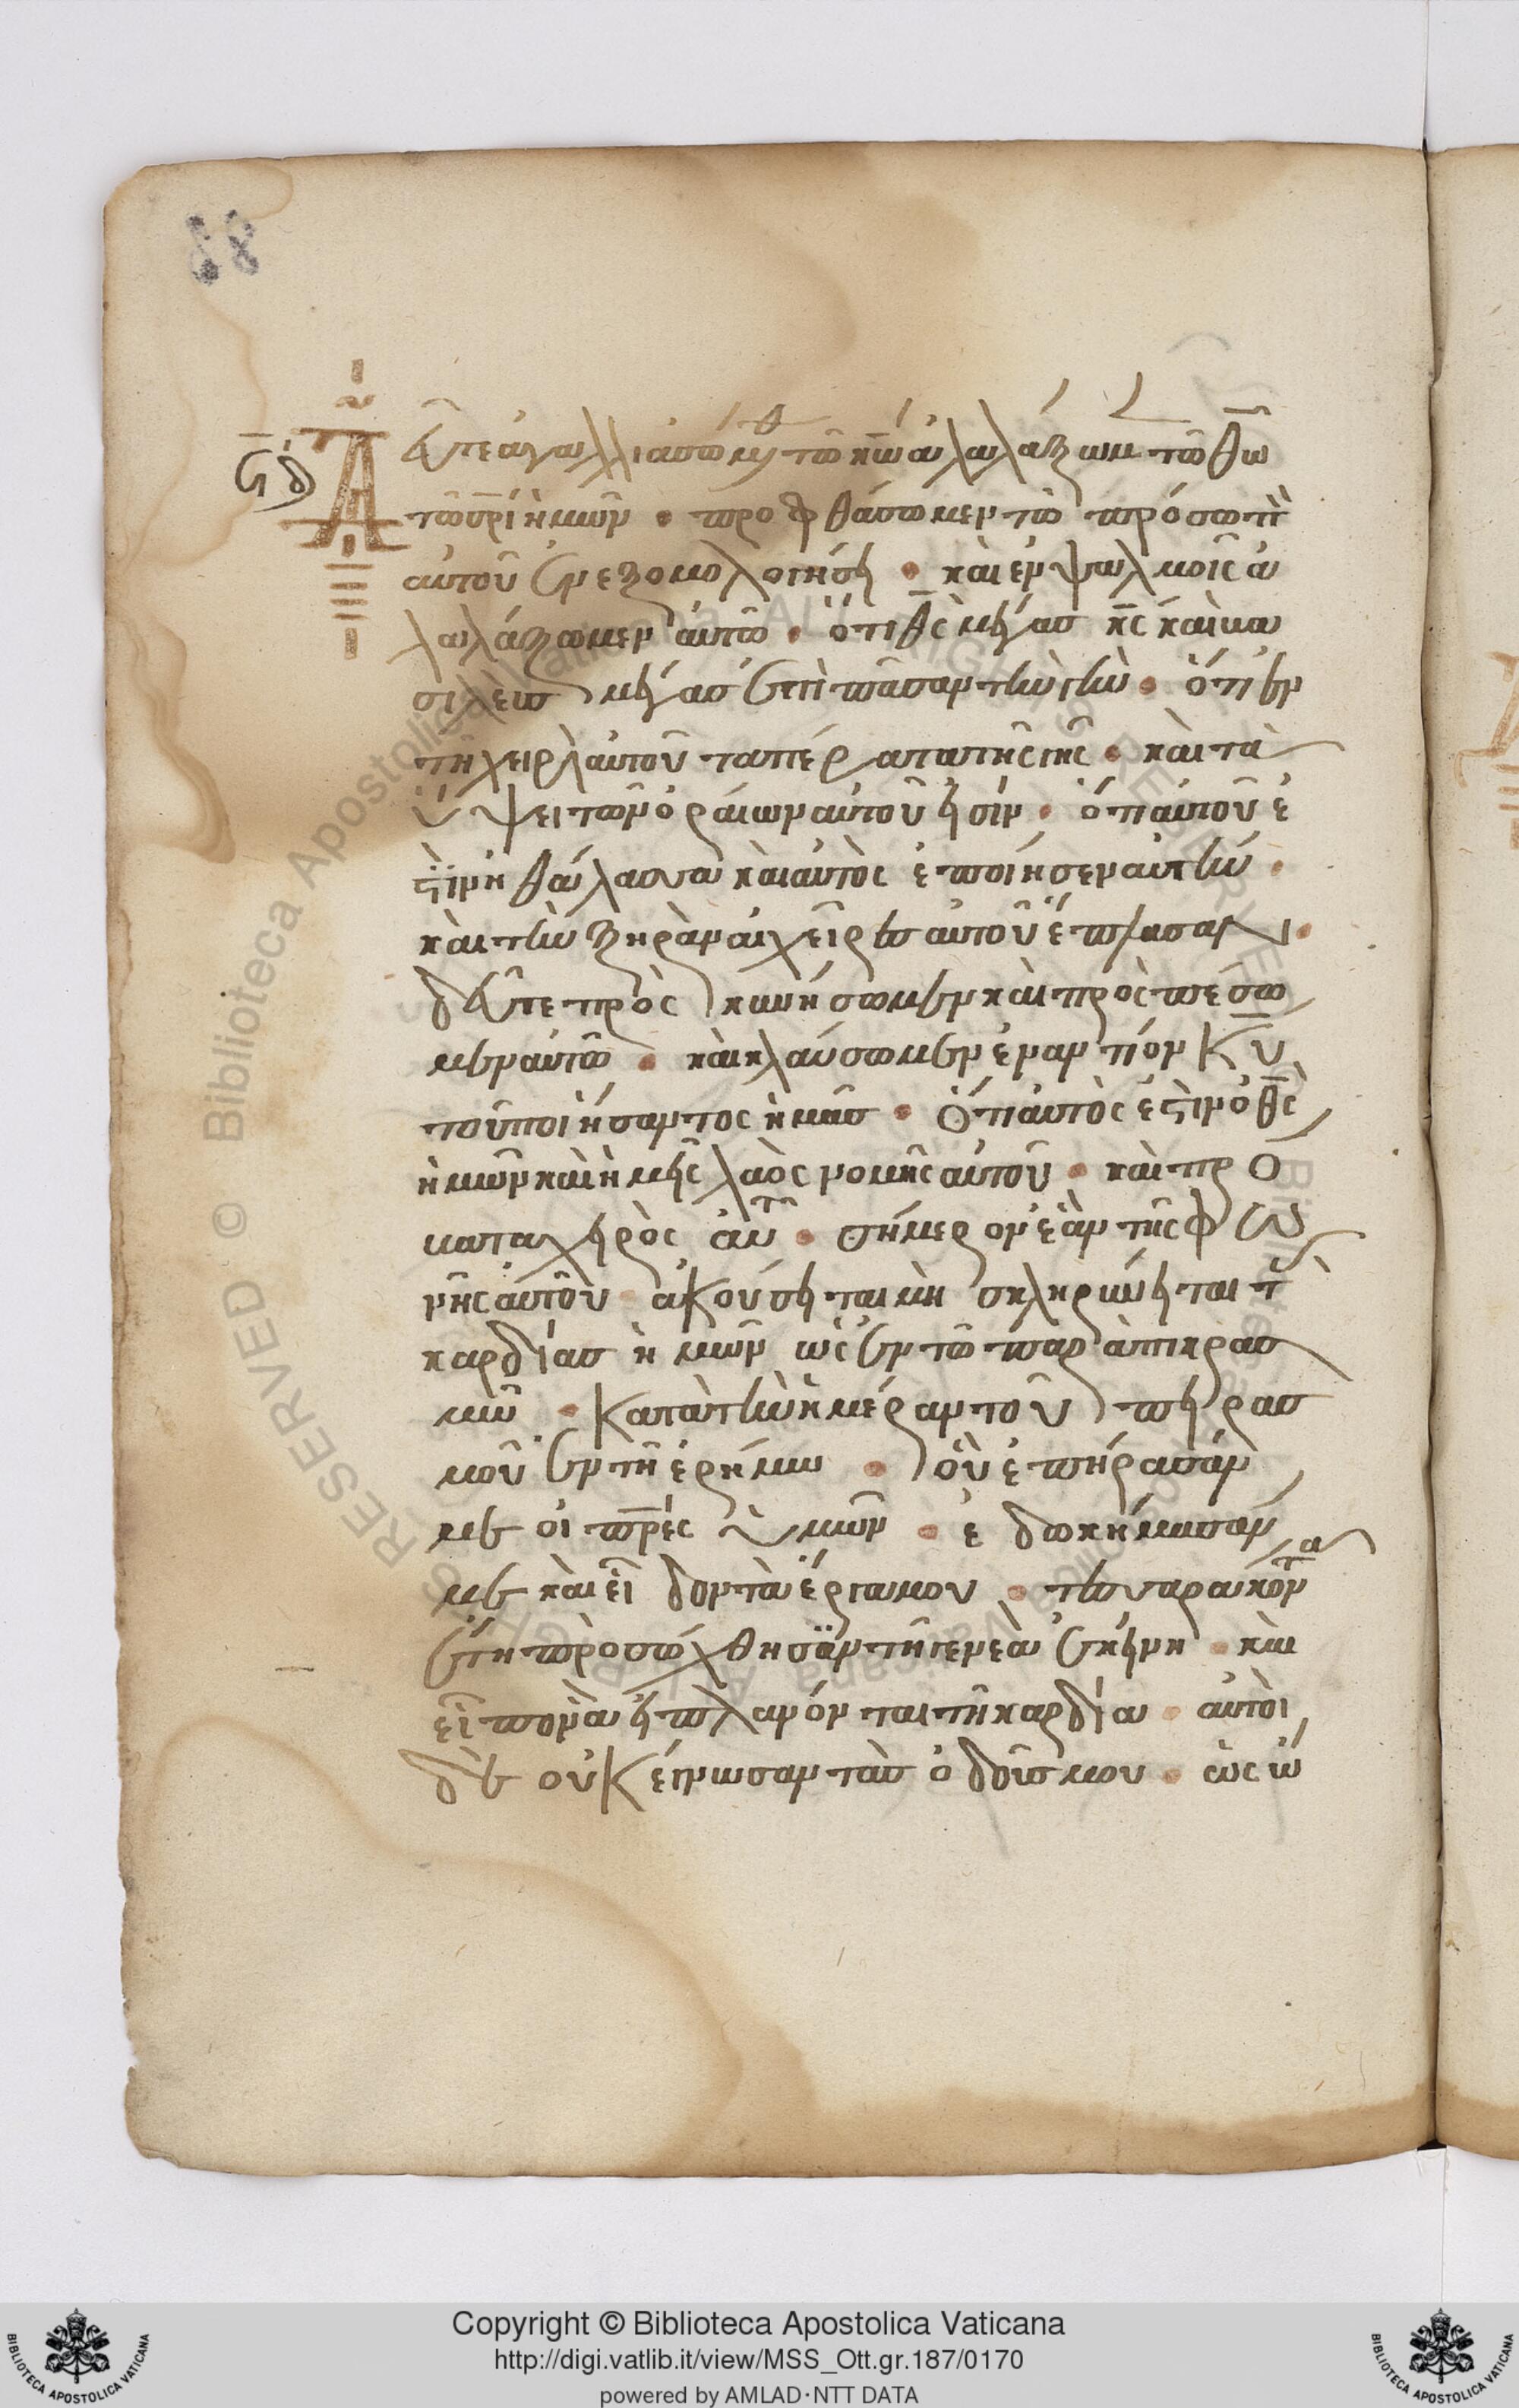 88
ϟδ
Δεῦτε ἀγαλλιασώμεθα τῶ κω ἀλαλάξωμεν τῶ θω
τῶ σρι ἡμῶν · προφθάσωμεν τὸ πρόσωπὸν
αὐτοῦ ἐν ἐξομολογήσει · καὶ ἐν ψαλμοῖς ἀ
λαλάξωμεν αὐτῶ · ὅτι θς μέγας κς καὶ βα
σιλεὺς μέγας ἐπὶ πᾶσαν τὴν γῆν · ὅτι ἐν
τῆ χειρὶ αὐτοῦ τα πέρατα τῆς γῆς · καὶ τὰ
ὕψει τῶν ὀρέων αὐτοῦ εἰσίν · ὅτι αὐτοῦ ἐ
στὶν ἡ θάλασσα καὶ αὐτὸς ἐποίησεν αὐτήν ·
καὶ τὴν ξηρὰν αἱ χεῖρες αὐτοῦ ἔπλασαν ·
δεῦτε προσκυνήσωμεν καὶ προσπέσω
μεν αὐτῶ · καὶ κλαύσωμεν ἐναντίον κυ
τοῦ ποιήσαντος ἡμᾶς · Ὅτι αὐτὸς ἐστὶν ὁ θς
ἡμῶν καὶ ἡμεῖς λαὸς νομῆς αὐτοῦ · καὶ πρό
βατα χειρὸς αὐτοῦ · σήμερον ἐὰν τῆς φω
νῆς αὐτοῦ ἀκούσηται μὴ σκληρύνηται τὰς
καρδίας ἡμῶν ὡς ἐν τῶ παραπικρασ
μῶ · Κατὰ τὴν ἡμέραν τοῦ πειρασ
μοῦ ἐν τῆ ἐρήμω · οὗ ἐπήρασάν
με οἱ πρες ὑμῶν · ἐδοκήμασάν
με καὶ εἶδον τὰ ἔργα μου · τεσσαράκοντα
ἔτη προσώχθησα τῆ γενεᾶ ἐκείνη · καὶ
εἶπον ἀεὶ πλανόνται τῆ καρδία · αὐτοὶ
δὲ οὐκ ἔγνωσαν τὰς ὁδούς μου · ὡς ὤ
Copyright © Biblioteca Apostolica Vaticana
http://digi.vatlib.it/view/MSS_Ott.gr.187/0170
powered by AMLAD·NTT DATA